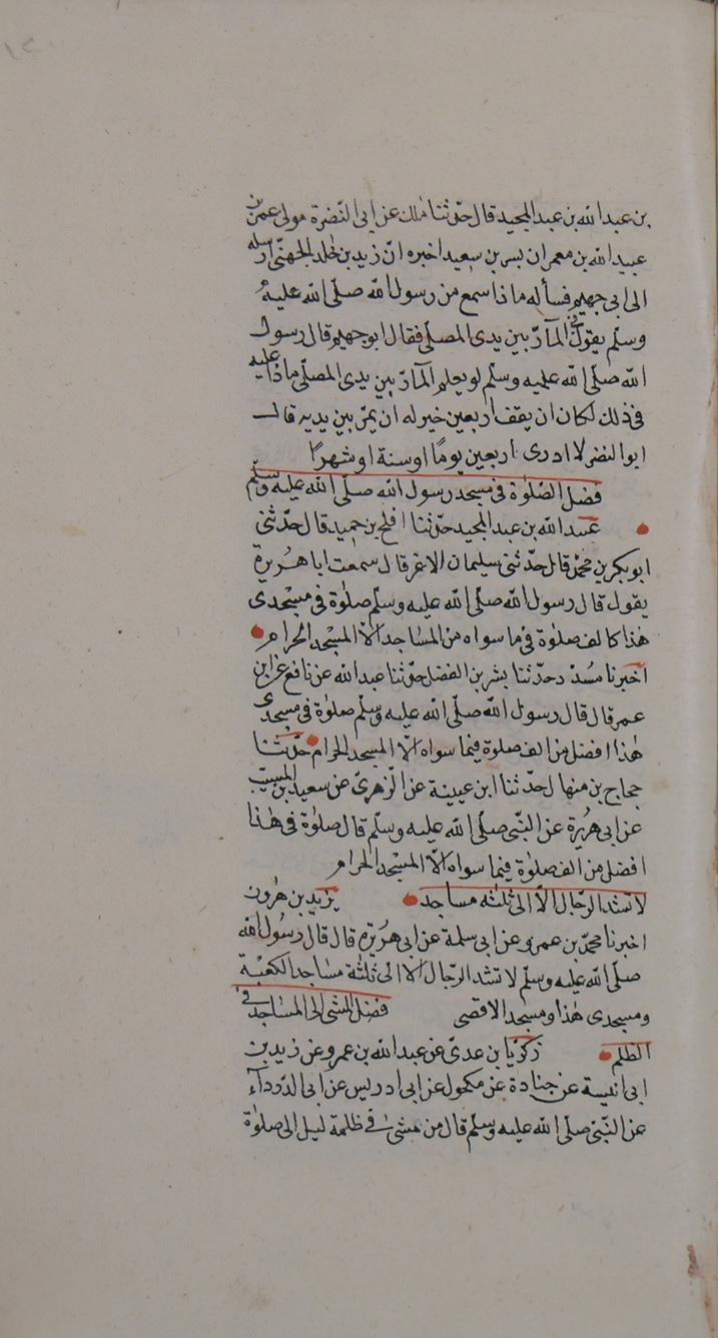 بن عبد الله بن عبد المجيد قال حدّثنا مٰلك عن ابى النّضرة مولى عمر بن
عبيد الله بن معمر ان بسر بن سعيد اخبره انّ زيد بن خٰلد الجهنّى ارسله
الى ابى جهيم فسأله ماذا سمع من رسول الله صلّى الله عليهُ
وسلّم يقول فى المآرّ بين يدى المصلّى فقال ابو جهيم قال رسول
الله صلّى الله عليه وسلّم لو يعلم المآرّ بين يدى المصلّى ماذا عليه
فى ذلك لكان ان يقف اربعين خير له ان يمرّ بين يديه قال
ابو النضر لا ادرى اربعين يومًا او سنة او شهرًا
فضل الصّلوٰة فى مسجد رسول الله صلّى الله عليه وسلّم
عبيد الله بن عبد المجيد حدّثنا افلح بن حميد قال حدّثنى
ابو بكر بن محمّد قال حدّثنى سليمان الاغر قال سمعت ابا هُريرة
يقول قال رسول الله صلّى الله عليه وسلّم صلوٰة فى مسْجدى
هٰذا كالف صلوٰة فى ما سواه من المسَاجد الّا المسْجد الحرام
اخبرنا مسدّد حدّثنا بشر بن الفضل حدّثنا عبد الله عن نافع عن ابن
عمر قال قال رسول الله صلّى الله عليه وسلّم صلوٰة فى مسجدى
هٰذا افضل من الف صلوٰة فيما سواه الّا المسجد الحرام حدّثنا
حجاج بن منهال حدّثنا ابن عيينة عن الزّهرىّ عن سعيد بن المسيّب
عن ابى هريرة عن النّبى صلّى الله عليه وسلّم قال صلوٰة فى هٰذا
افضل من الف صلوٰة فيما سواه الّا المسْجد الحرام
لا تشد الرّحال الّا الى ثلٰثه مساجد يزيد بن هٰرون
اخبرنا محمّد بن عمرو عن ابى سلمة عن ابى هرُيرة قال قال رسُول الله
صلّى الله عليه وسلّم لا تشد الرّحال الّا الى ثلٰثة مسَاجد الكعْبة
ومسجدى هٰذا ومسجد الاقصى فضل المشى الى المسَاجد فى
الظلم زكرّيا بن عدىّ عن عبد الله بن عمرو عن زيد بن
ابى انيسة عن جنادة عن مكحول عن ابى ادريس عن ابى الدّرداَء
عن النّبى صلّى الله عليه وسلّم قال من مشى فى ظلمة ليل الى صلوٰة